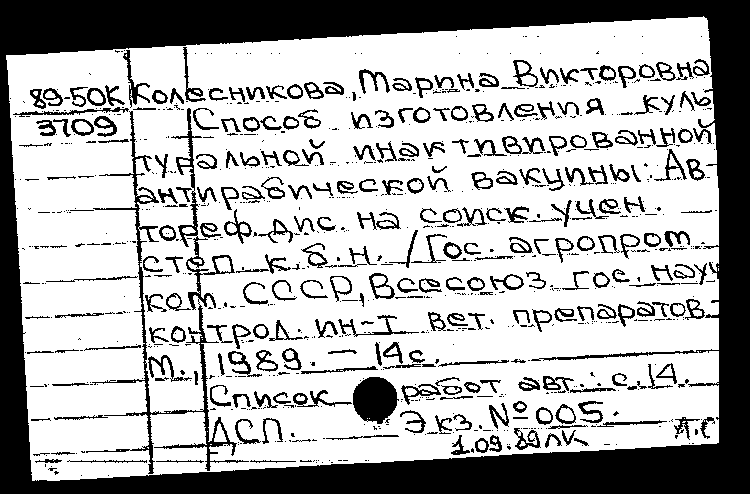 89-50К Колесникова, Марина Викторовна
3709 Способ изготовления куль-
туральной инактивированной
антирабической вакцины: Ав-
тореф. дис. на соиск. учен.
степ. к.б.н. /Гос. агропром.
ком. СССР, Всесоюз. гос. науч.
контрол. ин-т вет. препаратов.-
М., 1989. — 14с.
Список работ авт.: с.14.
ДСП. Экз. №005.
1.09.89ЛК А.С